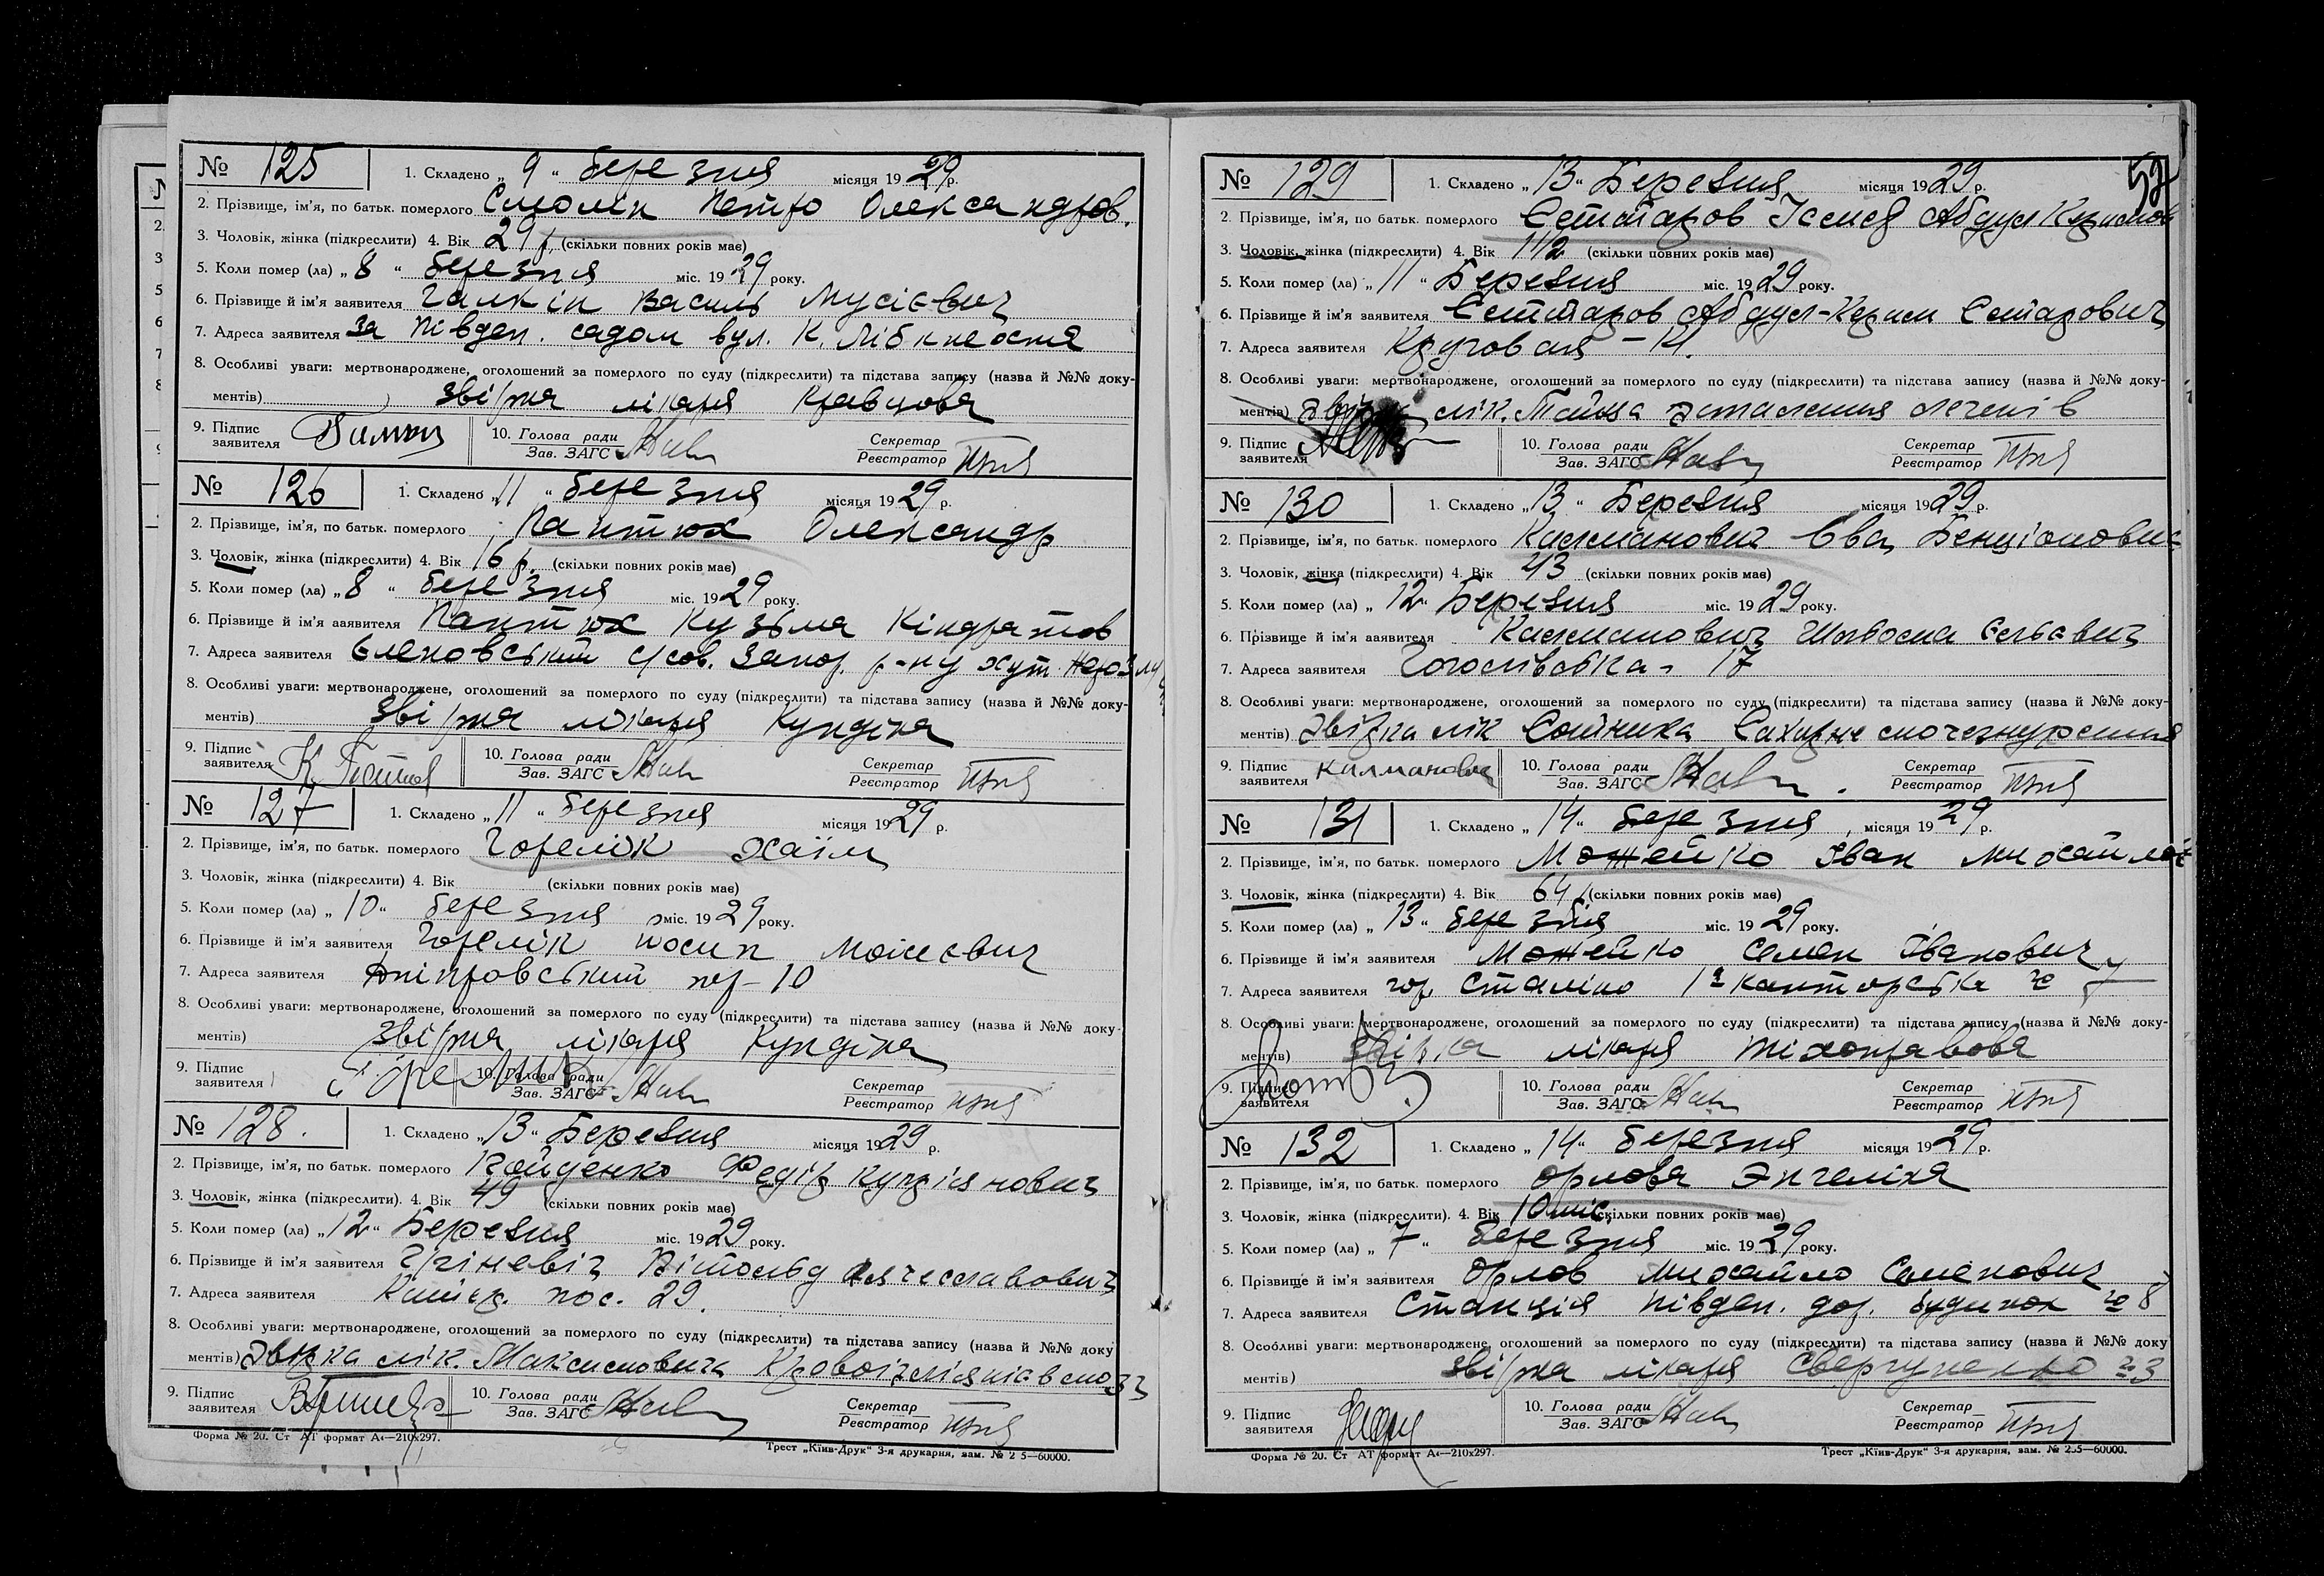 № 125 1. Складено „ 9 “ березня місяця 1929 р.
2. Прізвище, ім'я, по батьк. померлого Смолін Петро Олександров.
3. Чоловік, жінка (підкреслити) 4. Вік 29 р. (скільки повних років має)
5. Коли помер (ла) „ 8 “ березня міс. 1929 року.
6. Прізвище й ім'я заявителя Галкін Василь Мусієвич
7. Адреса заявителя за Півден. садом вул. К. Лібкнехта
8. Особливі уваги: мертвонароджене, оголошений за померлого по суду (підкреслити) та підстава запису (назва й №№ доку-
ментів) звірка лікаря Кравцова
9. Підпис заявителя 10. Голова ради Зав. ЗАГС Секретар Реєстратор
№ 126 1. Складено „ 11 “ березня місяця 1929 р.
2. Прізвище, ім'я, по батьк. померлого Пантюх Олександр
3. Чоловік, жінка (підкреслити) 4. Вік 16 р. (скільки повних років має)
5. Коли помер (ла) „ 8 “ березня міс. 1929 року.
6. Прізвище й ім'я заявителя Пантюх Кузьма Кіндратов
7. Адреса заявителя Єленовський с/сов. Запор. р-ну хут.
8. Особливі уваги: мертвонароджене, оголошений за померлого по суду (підкреслити) та підстава запису (назва й №№ доку-
ментів) звірка лікаря Кундіна
9. Підпис заявителя 10. Голова ради Зав. ЗАГС Секретар Реєстратор
№ 127 1. Складено „ 11 “ березня місяця 1929 р.
2. Прізвище, ім'я, по батьк. померлого Горелік Хаїм
3. Чоловік, жінка (підкреслити) 4. Вік (скільки повних років має)
5. Коли помер (ла) „ 10 “ березня міс. 1929 року.
6. Прізвище й ім'я заявителя Горелік Йосип Мойсеєвич
7. Адреса заявителя Дніпровський пер-10
8. Особливі уваги: мертвонароджене, оголошений за померлого по суду (підкреслити) та підстава запису (назва й №№ доку-
ментів) звірка лікаря Кундіна
9. Підпис заявителя 10. Голова ради Зав. ЗАГС Секретар Реєстратор
№ 128. 1. Складено „ 13 “ Березня місяця 1929 р.
2. Прізвище, ім'я, по батьк. померлого Федір
3. Чоловік, жінка (підкреслити). 4. Вік 49 (скільки повних років має)
5. Коли помер (ла) „ 12 “ Березня міс. 1929 року.
6. Прізвище й ім'я заявителя Вітольд
7. Адреса заявителя пос. 29.
8. Особливі уваги: мертвонароджене, оголошений за померлого по суду (підкреслити) та підстава запису (назва й №№ доку
ментів) звірка лік. Максимовича
9. Підпис заявителя 10. Голова ради Зав. ЗАГС Секретар Реєстратор
Форма № 20. Ст АТ формат А4—210х297. Трест „Київ-Друк“ 3-я друкарня, зам. № 2 5—60000.
52
№ 129 1. Складено „ 13 “ Березня місяця 1929 р.
2. Прізвище, ім'я, по батьк. померлого Сеттаров Абдул Керимов
3. Чоловік, жінка (підкреслити) 4. Вік 1 1/2 (скільки повних років має)
5. Коли помер (ла) „ 11 “ Березня міс. 1929 року.
6. Прізвище й ім'я заявителя Сеттаров Абдул-Керим Сетарович
7. Адреса заявителя Круговая -
8. Особливі уваги: мертвонароджене, оголошений за померлого по суду (підкреслити) та підстава запису (назва й №№ доку-
ментів) звірка лік.
9. Підпис заявителя 10. Голова ради Зав. ЗАГС Секретар Реєстратор
№ 130 1. Складено „ 13 “ Березня місяця 1929 р.
2. Прізвище, ім'я, по батьк. померлого Калманович Єва Бенціоновна
3. Чоловік, жінка (підкреслити) 4. Вік 43 (скільки повних років має)
5. Коли помер (ла) „ 12 “ Березня міс. 1929 року.
6. Прізвище й ім'я заявителя Калманович
7. Адреса заявителя Гоголівська - 17
8. Особливі уваги: мертвонароджене, оголошений за померлого по суду (підкреслити) та підстава запису (назва й №№ доку-
ментів) звірка лік Сахарне
9. Підпис заявителя 10. Голова ради Зав. ЗАГС Секретар Реєстратор
№ 131 1. Складено „ 14 “ березня місяця 1929 р.
2. Прізвище, ім'я, по батьк. померлого Можейко Іван Михайлов
3. Чоловік, жінка (підкреслити) 4. Вік 64 р. (скільки повних років має)
5. Коли помер (ла) „ 13 “ березня міс. 1929 року.
6. Прізвище й ім'я заявителя Можейко Семен Іванович
7. Адреса заявителя гор. Сталіно 1а Канторська № 7
8. Особливі уваги: мертвонароджене, оголошений за померлого по суду (підкреслити) та підстава запису (назва й №№ доку-
ментів) звірка лікаря Тіхонравова
9. Підпис заявителя 10. Голова ради Зав. ЗАГС Секретар Реєстратор
№ 132 1. Складено „ 14 “ березня місяця 1929 р.
2. Прізвище, ім'я, по батьк. померлого Орлова Энгеліна
3. Чоловік, жінка (підкреслити). 4. Вік 10 міс. (скільки повних років має)
5. Коли помер (ла) „ 7 “ березня міс. 1929 року.
6. Прізвище й ім'я заявителя Орлов Михайло Семенович
7. Адреса заявителя Станція Півден. дор. будинок № 8
8. Особливі уваги: мертвонароджене, оголошений за померлого по суду (підкреслити) та підстава запису (назва й №№ доку
ментів) звірка лікаря Свергуненко № 3
9. Підпис заявителя 10. Голова ради Зав. ЗАГС Секретар Реєстратор
Форма № 20. Ст АТ формат А4—210х297. Трест „Київ-Друк“ 3-я друкарня, зам. № 2.5—60000.